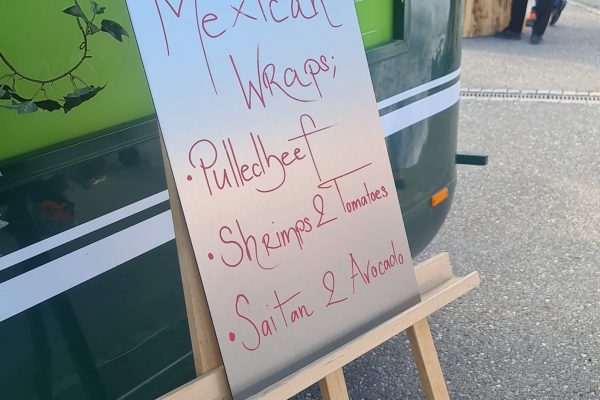 Mexican
Wraps;
• Pulledbeef
• Shrimps & Tomatoes
• Saitan & Avocado